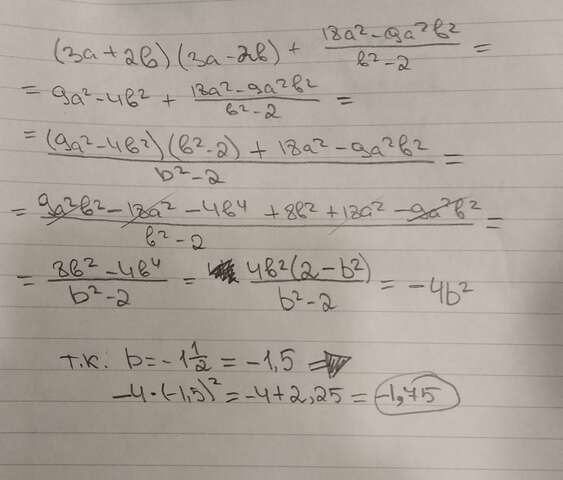 (3a + 2b)(3a - 2b) + (18a² - 9a²b²)/(b² - 2) =
= 9a² - 4b² + (18a² - 9a²b²)/(b² - 2) =
= ((9a² - 4b²)(b² - 2) + 18a² - 9a²b²)/(b² - 2) =
= (9a²b² - 18a² - 4b⁴ + 8b² + 18a² - 9a²b²)/(b² - 2) =
= (8b² - 4b⁴)/(b² - 2) = (4b²(2 - b²))/(b² - 2) = -4b²
т.к. b = -1 1/2 = -1,5 ⇒
-4·(-1,5)² = -4 + 2,25 = -1,75